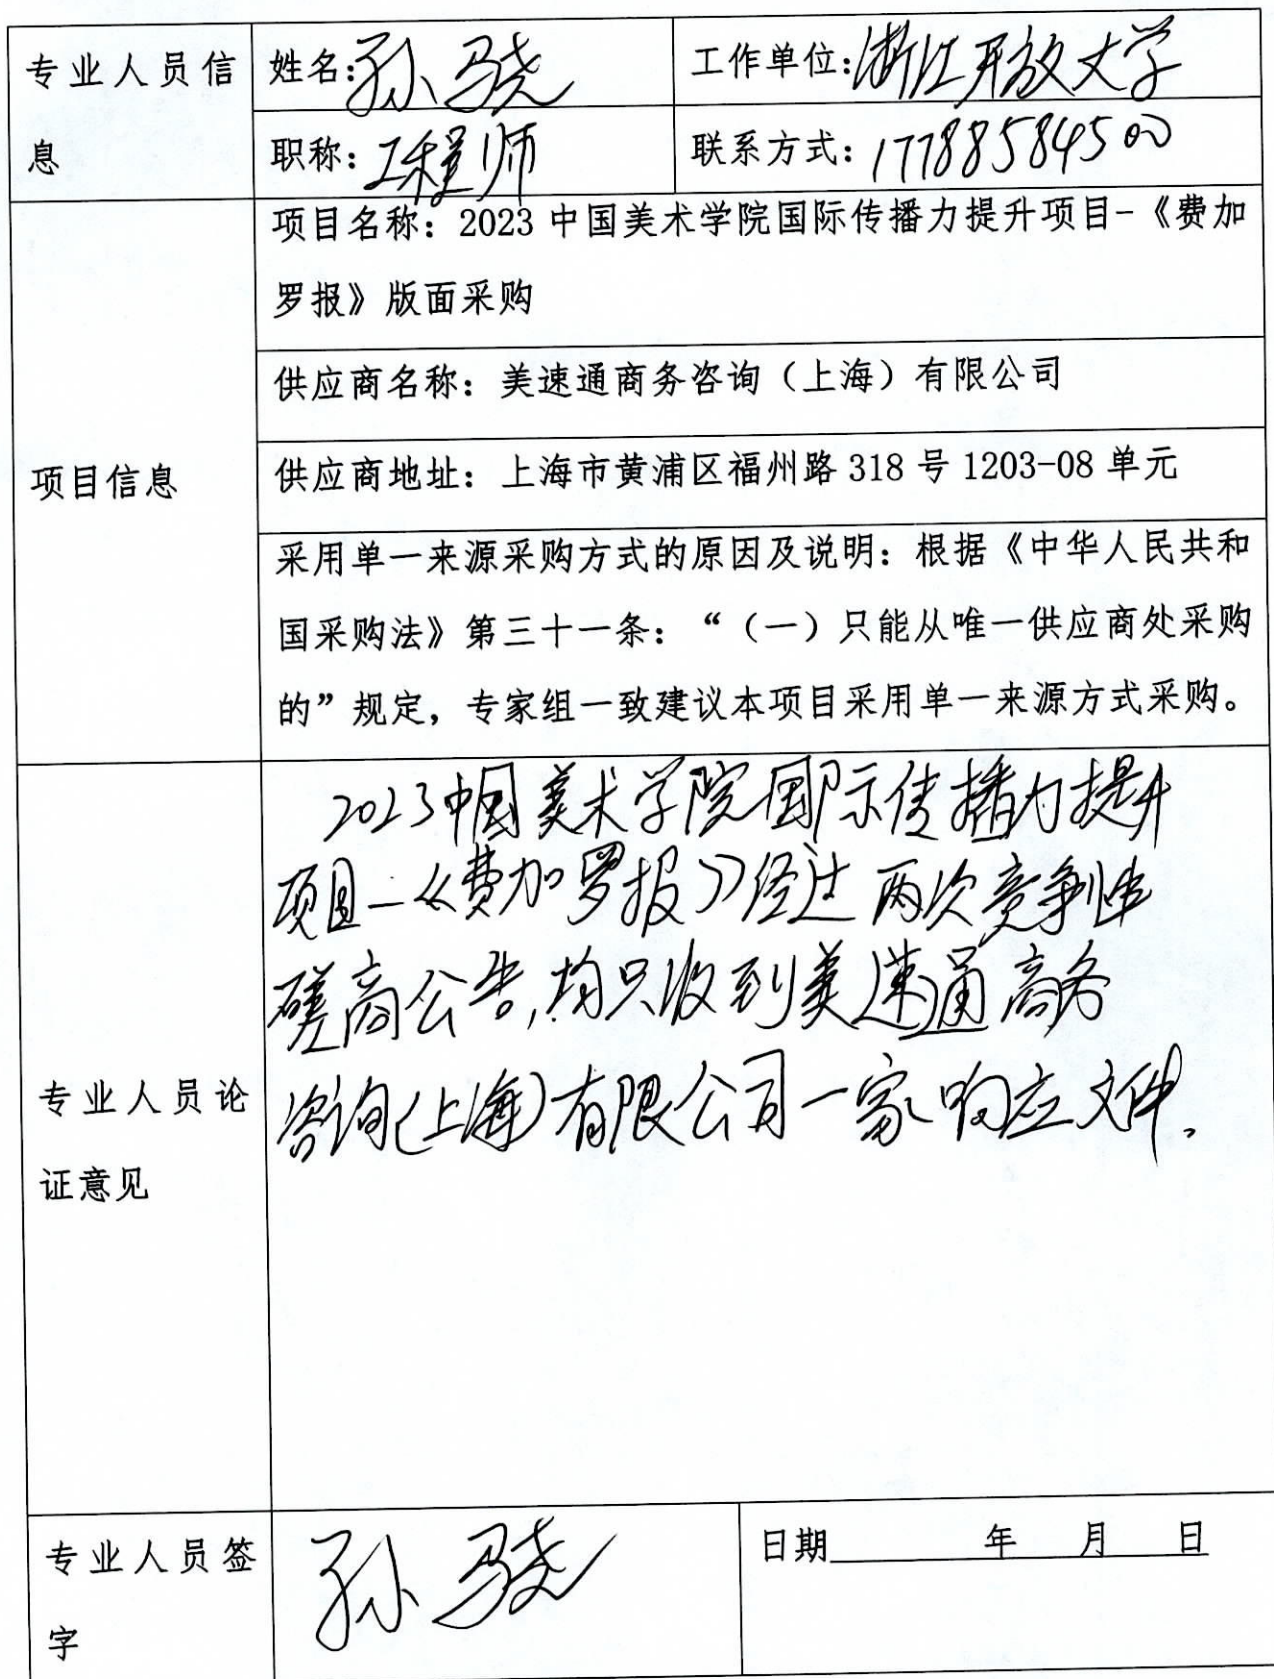 专业人员信息
姓名:孙骁
工作单位:浙江开放大学
职称：工程师
联系方式：17788584500
项目信息
项目名称：2023 中国美术学院国际传播力提升项目-《费加
罗报》版面采购
供应商名称：美速通商务咨询（上海）有限公司
供应商地址：上海市黄浦区福州路 318 号 1203-08 单元
采用单一来源采购方式的原因及说明：根据《中华人民共和
国采购法》第三十一条：“（一）只能从唯一供应商处采购
的”规定，专家组一致建议本项目采用单一来源方式采购。
专业人员论
证意见
2023中国美术学院国际传播力提升
项目-《费加罗报》经过两次竞争性
磋商公告,均只收到美速通商务
咨询(上海)有限公司一家响应文件.
专业人员签
字
孙骁
日期 年 月 日